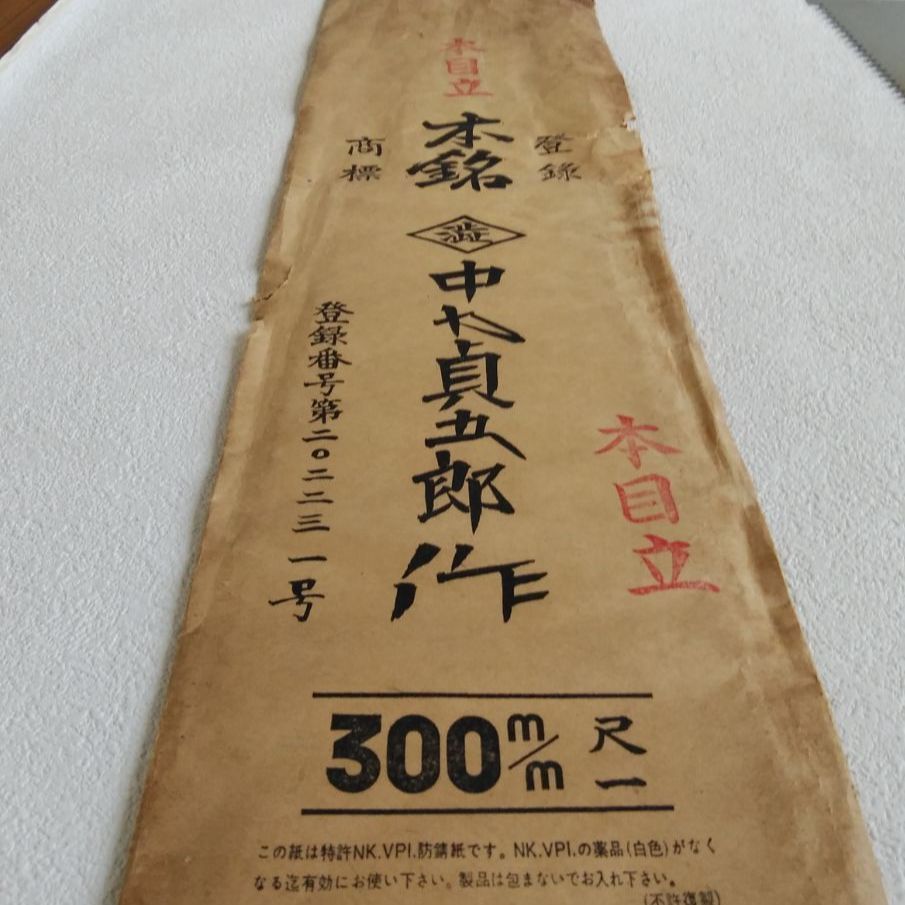 本目立
登録
商標
本銘
澁
中や貞五郎作
本目立
登録番号第二〇二二三一号
300m/m
尺一
この紙は特許NK.VPI.防錆紙です。NK.VPI.の薬品(白色)がなく
なる迄有効にお使い下さい。製品は包まないでお入れ下さい。
(不許復製)